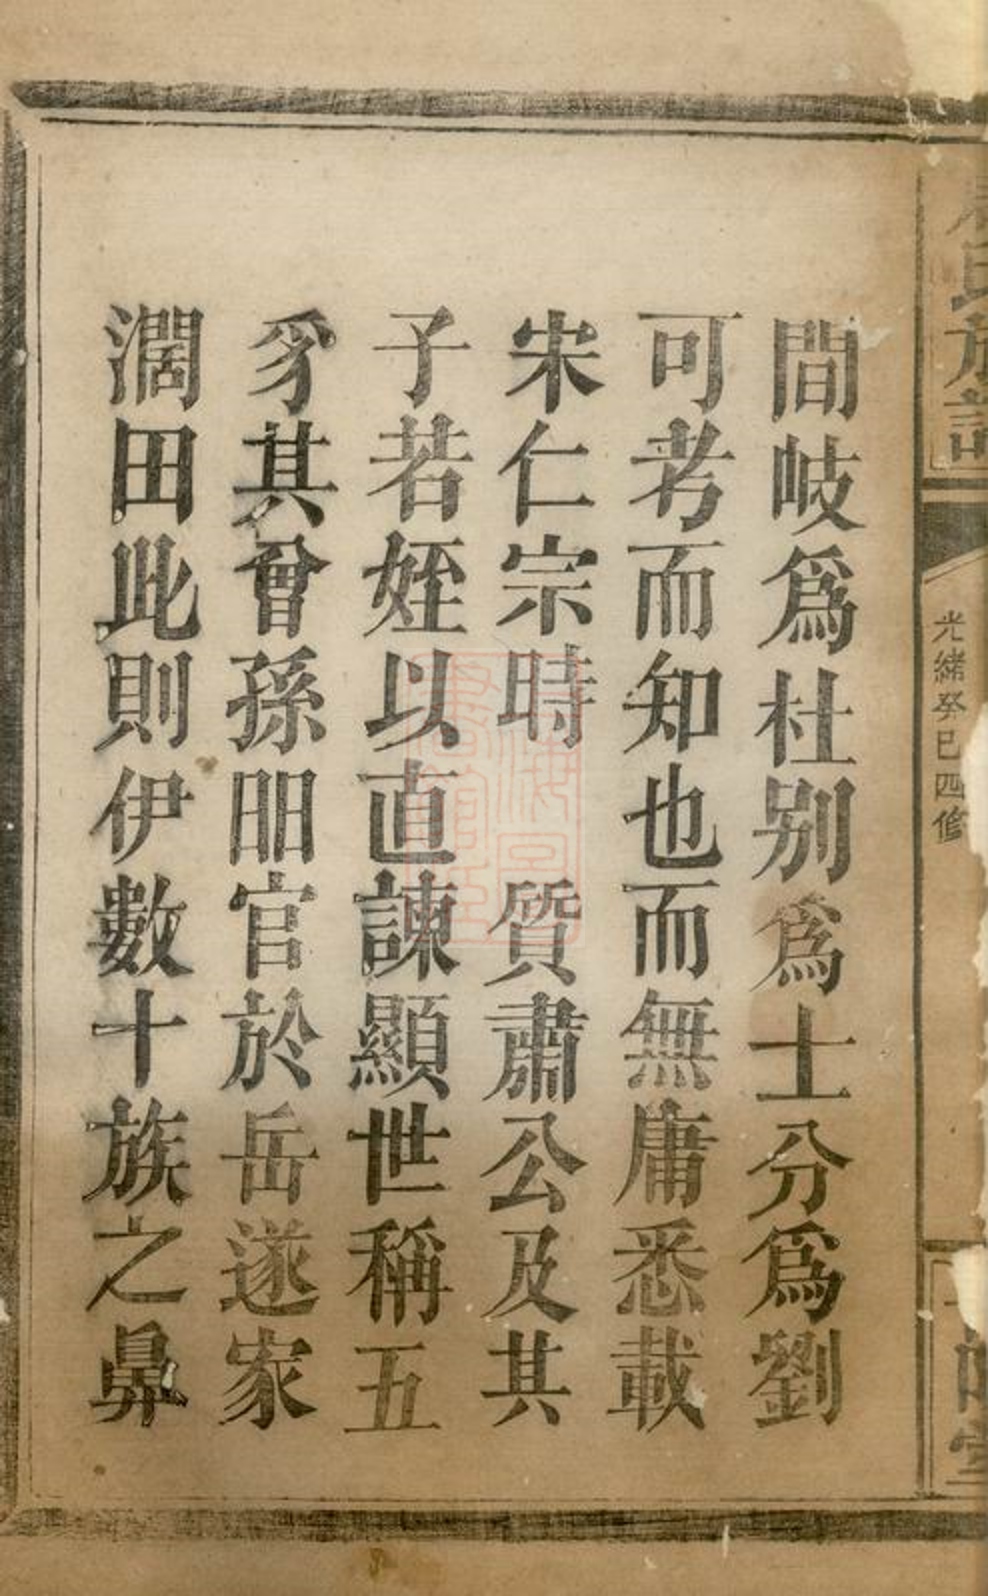 氏族譜
光緒癸巳四修
間岐爲杜別爲士分爲劉
可考而知也而無庸悉載
宋仁宗時 質肅公及其
子若姪以直諫顯世稱五
豸其曾孫昍官於岳遂家
濶田此則伊數十族之鼻